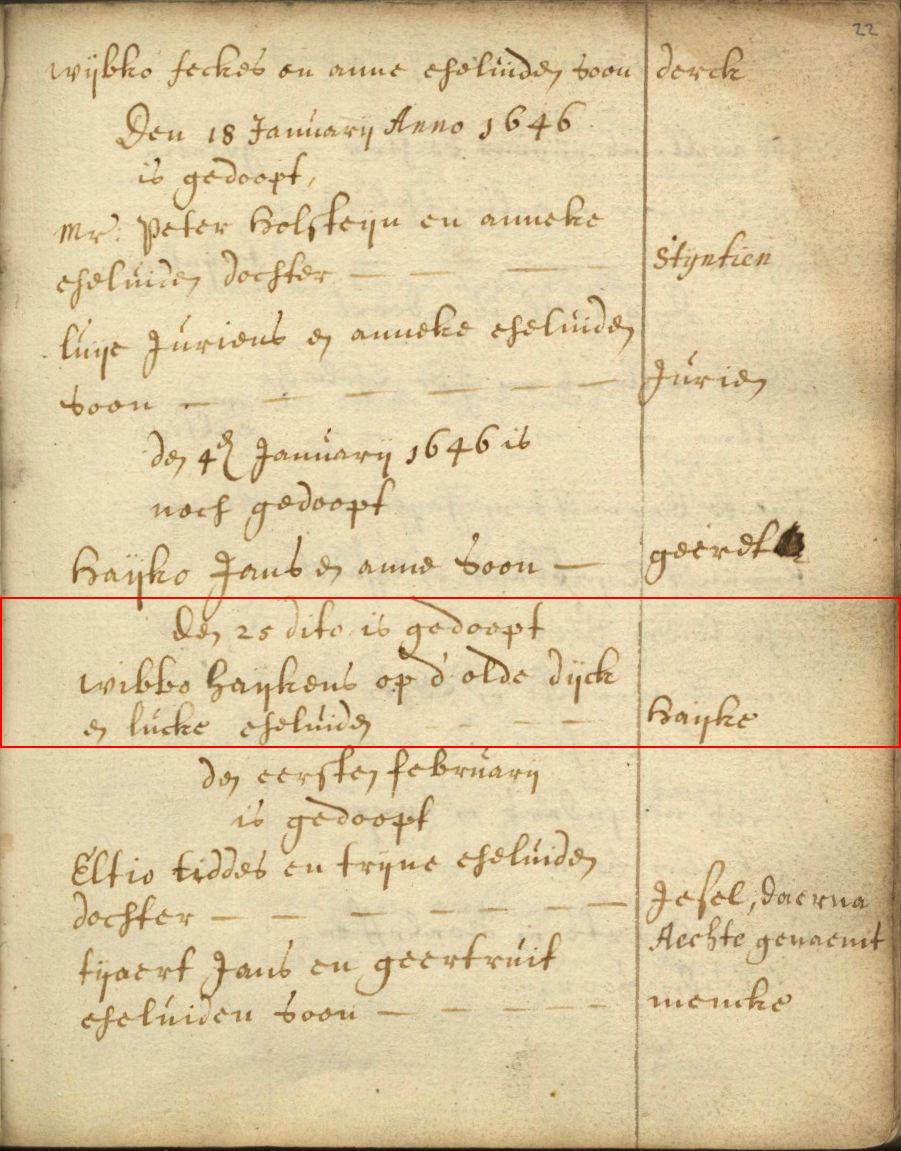 22
wijbko feckes en anne eheluiden soon derck
Den 18 Januarij Anno 1646
is gedoopt,
Mr. Peter Holsteijn en anneke
eheluiden dochter — — — Styntien
luije Juriens en anneke eheluiden
soon — — — — — — Jurien
den 4 Januarij 1646 is
noch gedoopt
Haijko Jans en anne soon — geerdt
den 25 dito is gedoopt
wibbo haijkens op d'olde dijck
en lucke eheluiden — — — Haijke
den eersten februarij
is gedoopt
Eltio tiddes en trijne eheluiden
dochter — — — — — — Jesel, daerna
Aechte genaemt
tijaert Jans en geertruit
eheluiden soon — — — — — mencke